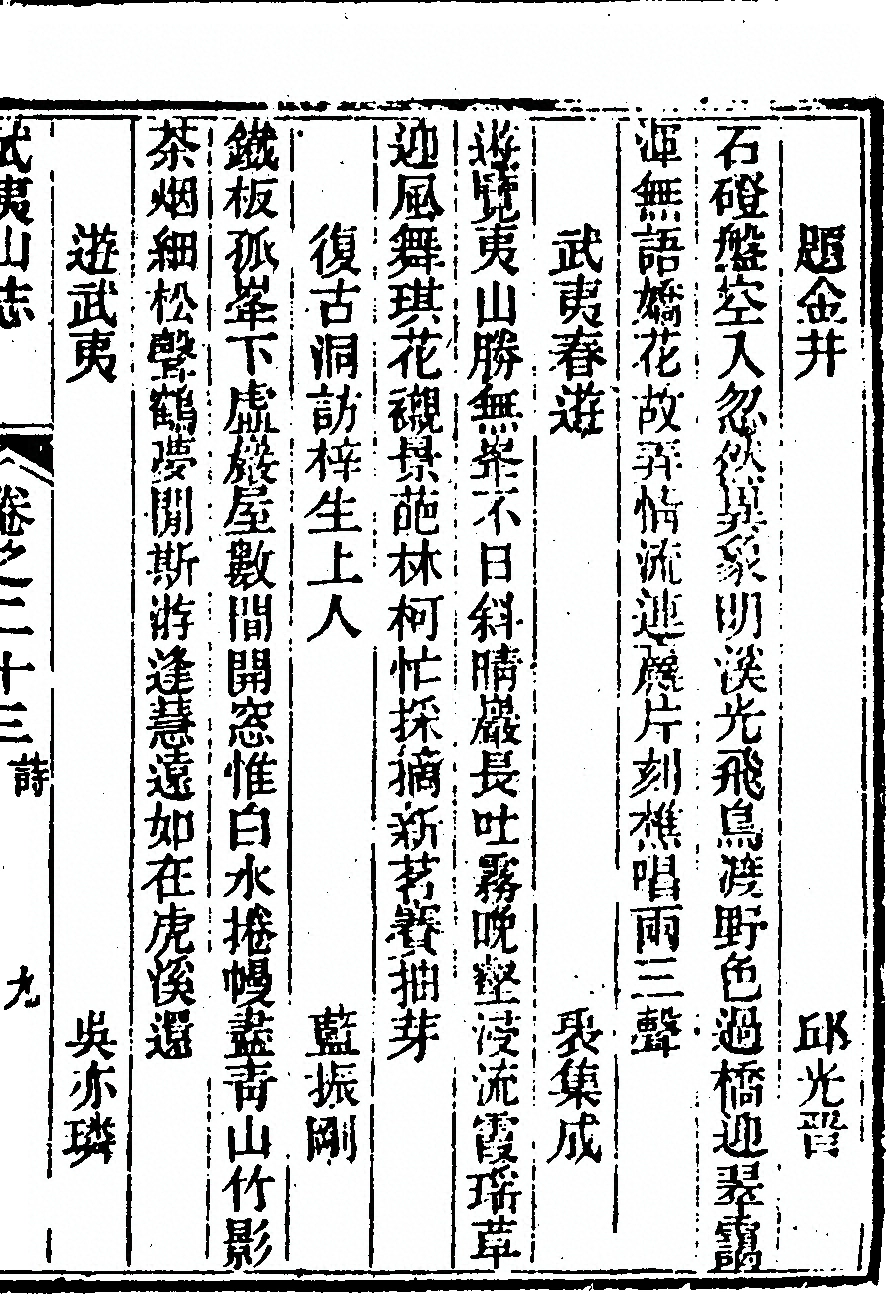 題金井 邱光晋
石磴盤空入忽然異象明溪光飛鳥渡野色過橋迎翠靄
渾無語嬌花故弄情流連片刻樵唱兩三聲
武夷春遊 裘集成
遊覽夷山勝無峯不日斜晴巖長吐霧晚壑浸流霞瑤草
迎風舞琪花襯景葩林柯忙採摘新茗賽抽芽
復古洞訪梓生上人 藍振剛
鐵板孤峯下虛巖屋數間開窓惟白水捲幔盡青山竹影
茶烟細松聲鶴夢閒斯游逢慧遠如在虎溪還
遊武夷 吳亦璘
武夷山志 卷之二十三 詩 九